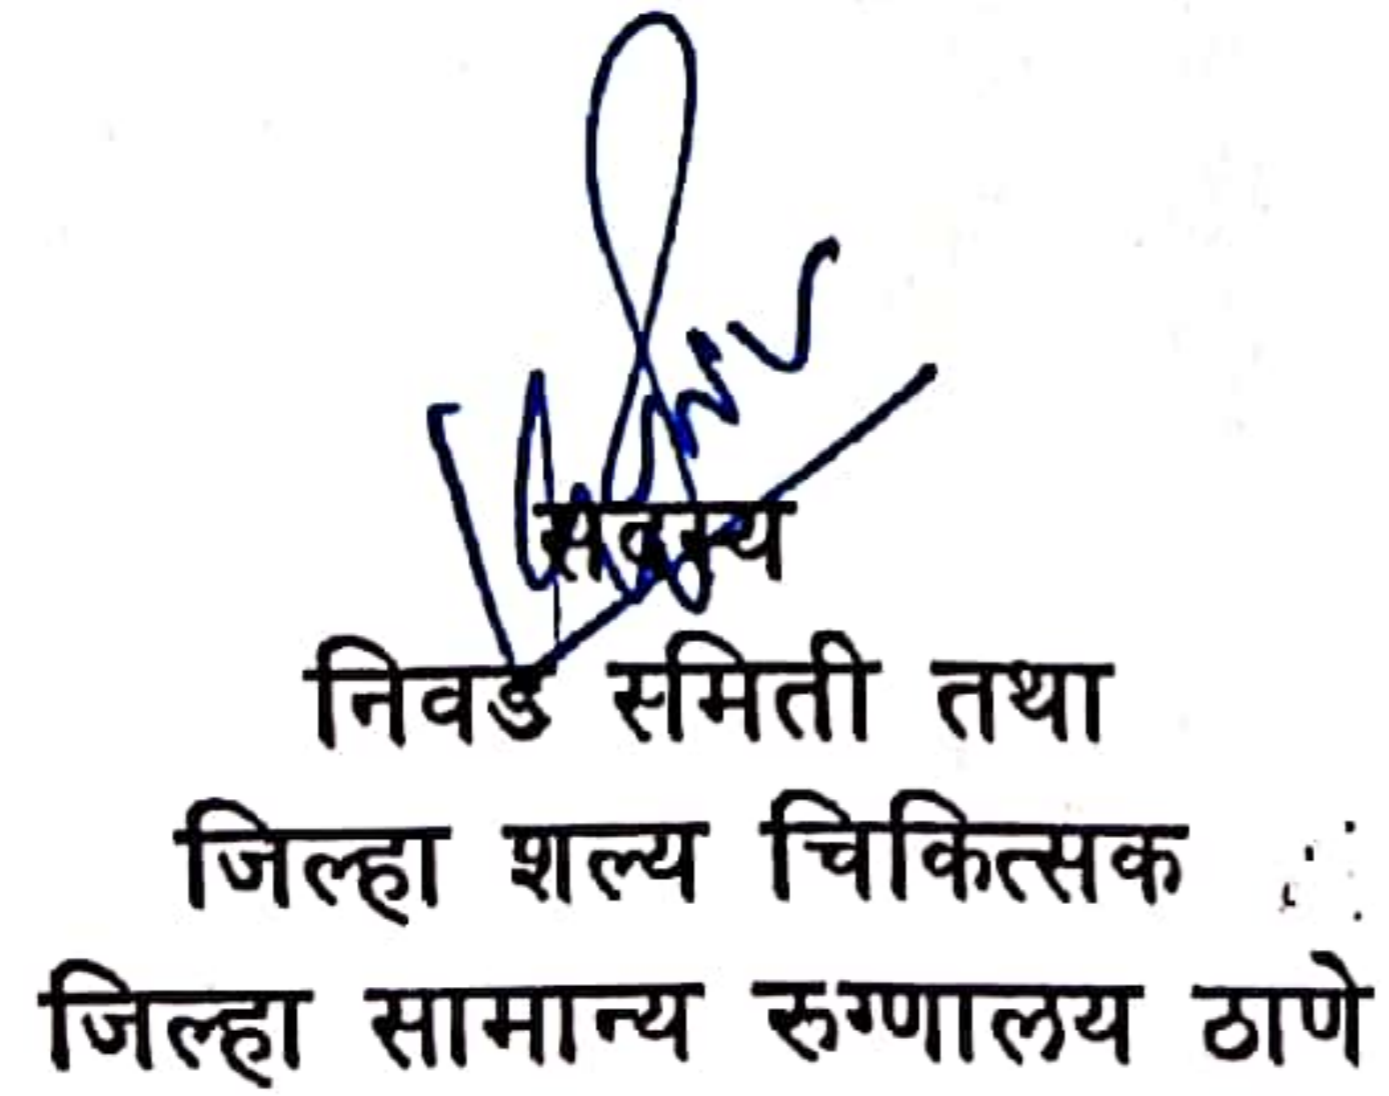 सदस्य
निवड समिती तथा
जिल्हा शल्य चिकित्सक
जिल्हा सामान्य रुग्णालय ठाणे